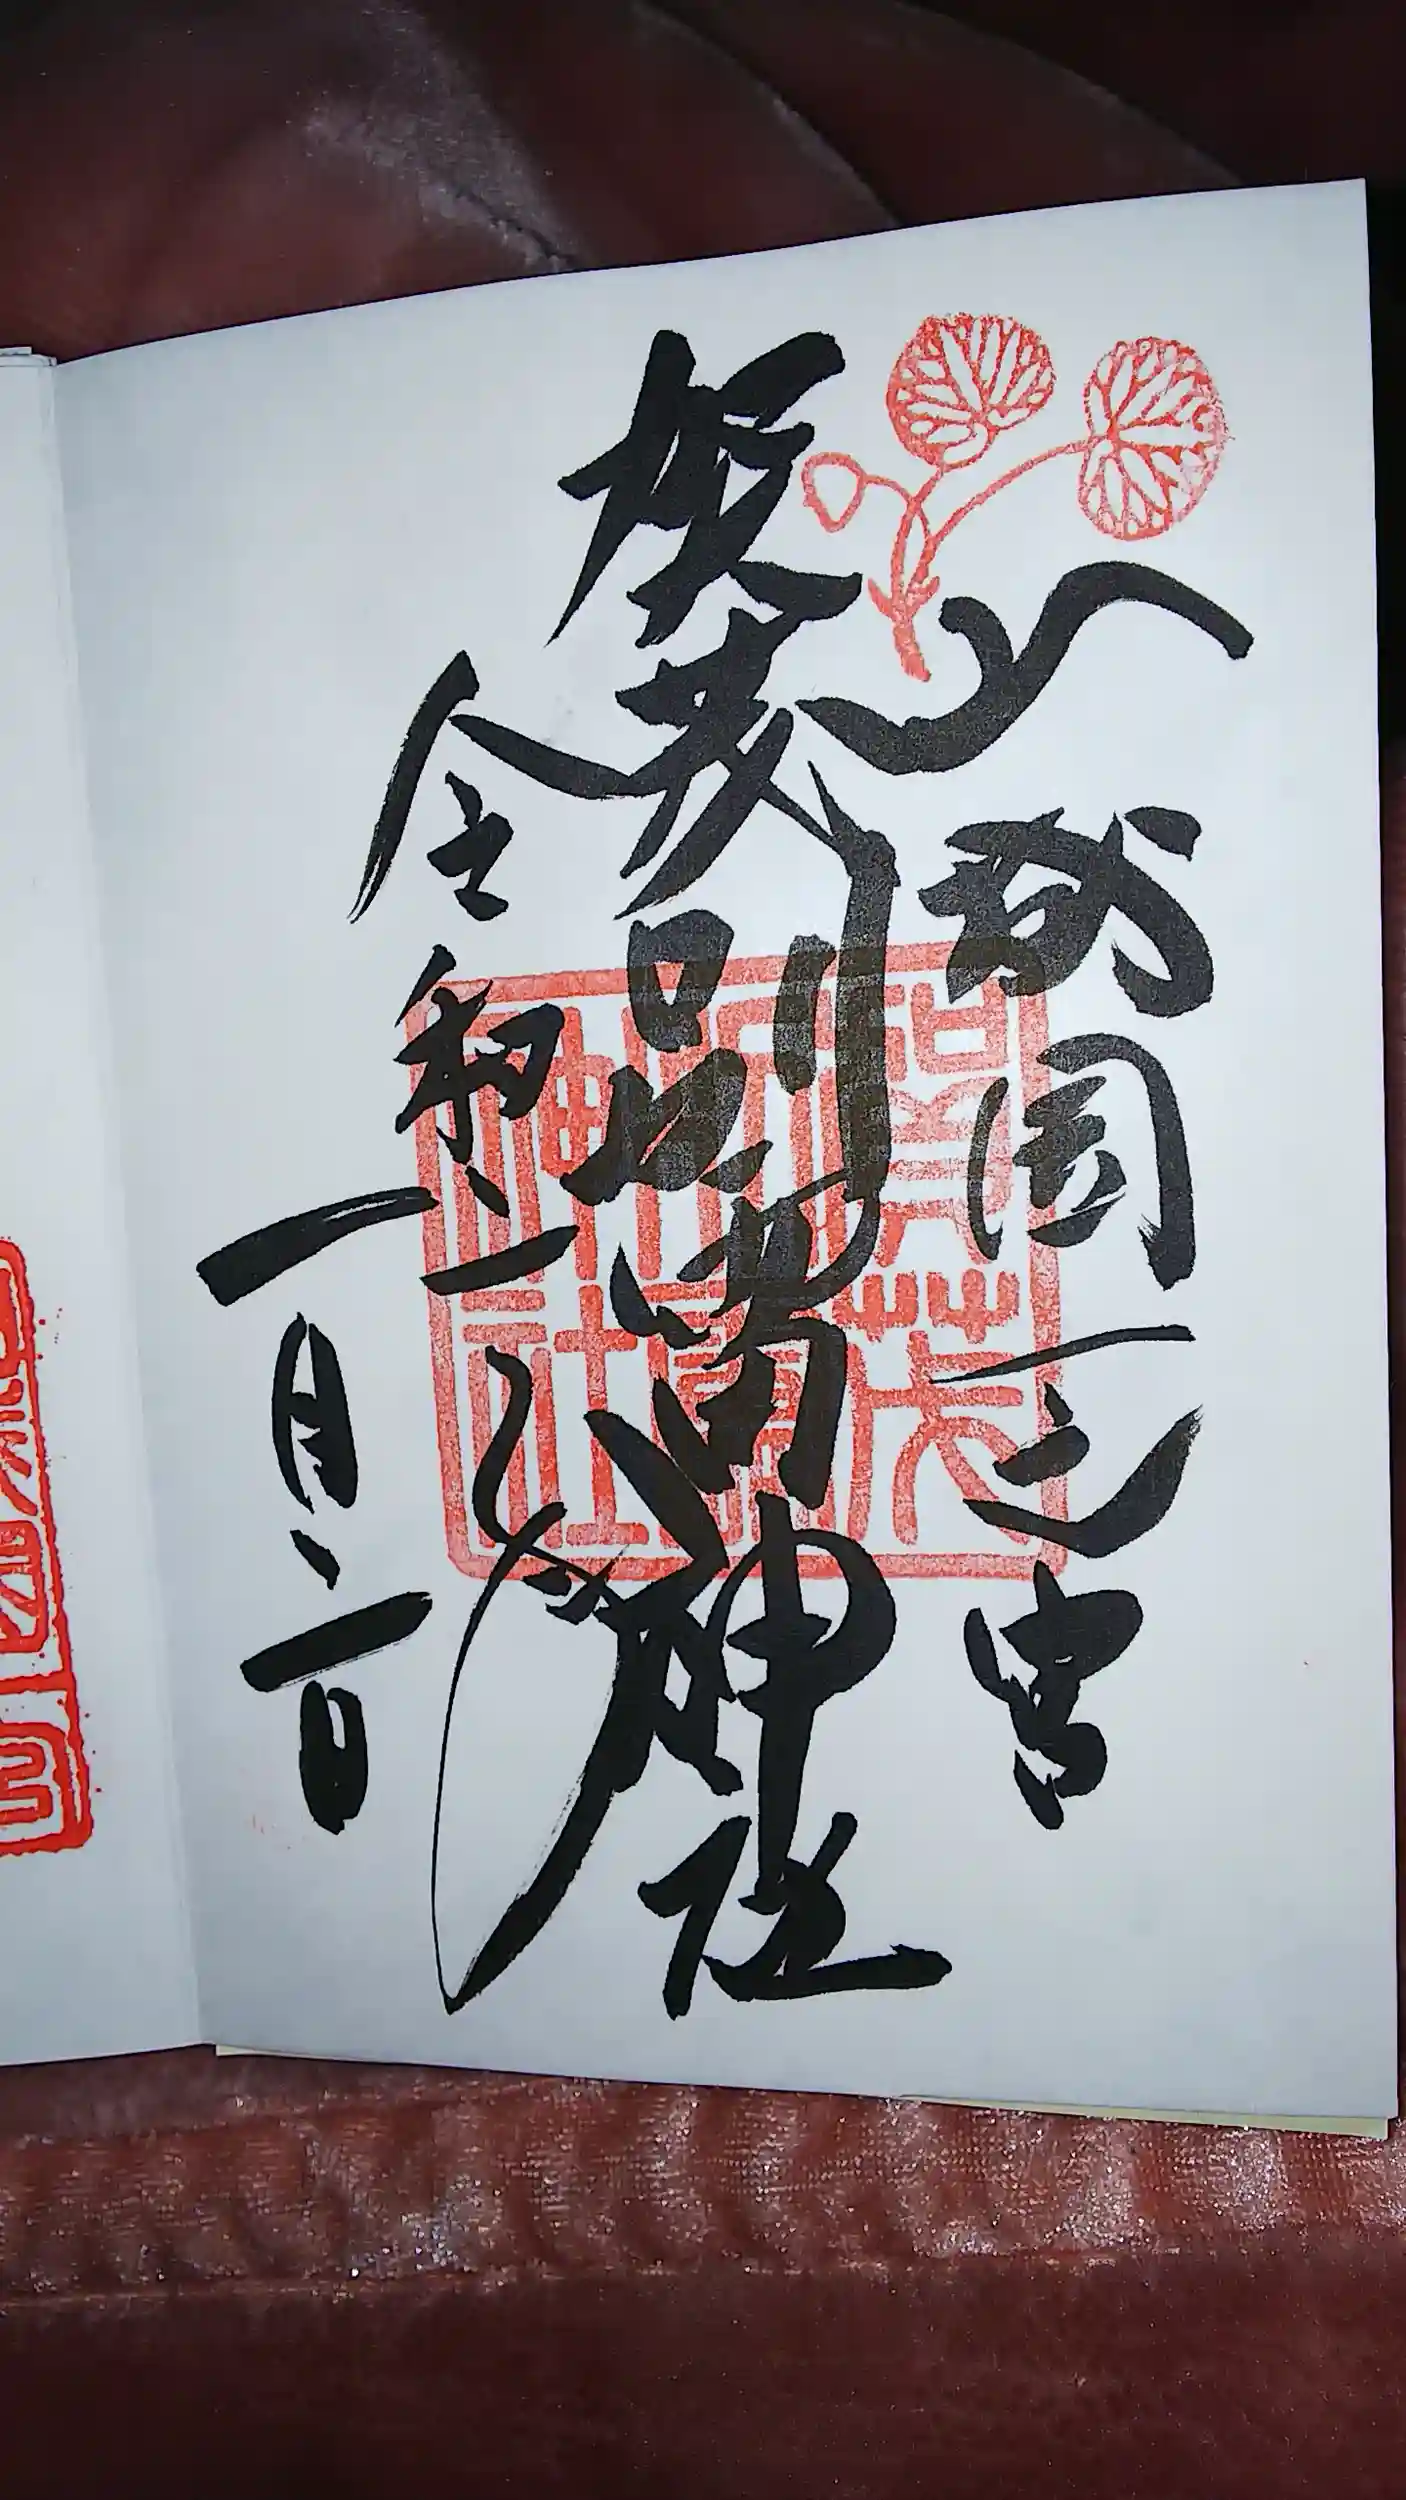 山城国一之宮
賀茂別雷神社
令和二年
一月二日
賀茂
別雷
神社